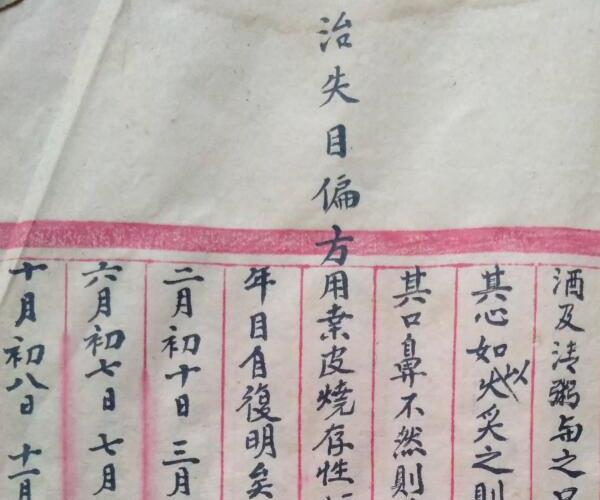 酒及清粥勿之
其心如以火炙之則
其口鼻不然則
治失目偏方用桑皮燒存性
年目自復明矣
二月初十日 三月
六月初七日 七月
十月初八日 十一月